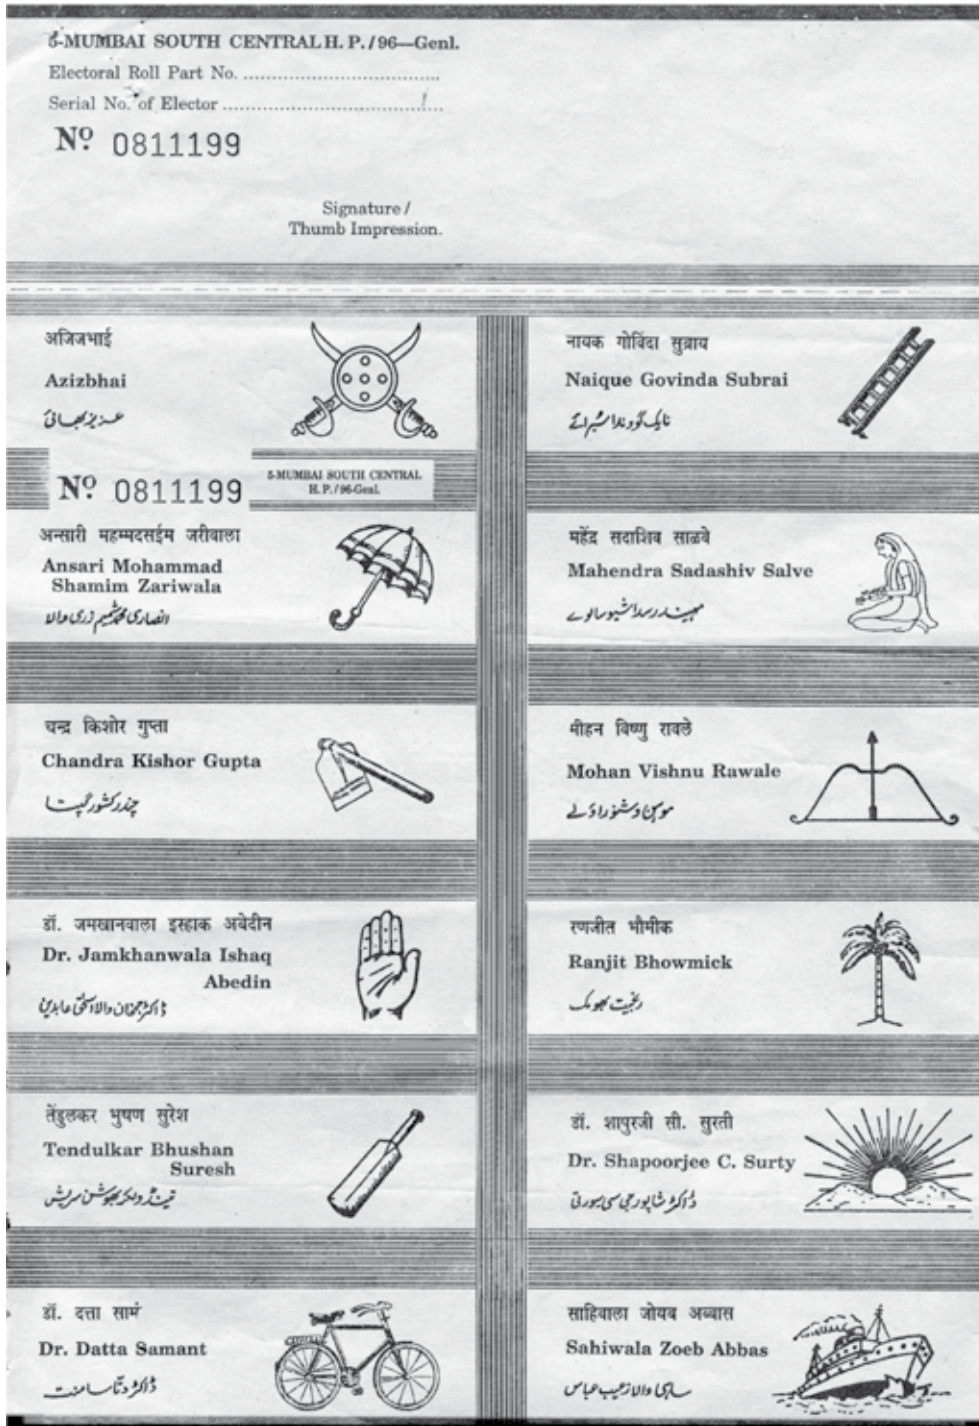 5-MUMBAI SOUTH CENTRAL H. P. / 96—Genl.
Electoral Roll Part No. ...................................
Serial No. of Elector .......................................
No. 0811199
Signature /
Thumb Impression.
अजिजभाई
Azizbhai
عزیز بھائی
No. 0811199
5-MUMBAI SOUTH CENTRAL
H. P. / 96-Genl.
अन्सारी महम्मदसईम जरीवाला
Ansari Mohammad
Shamim Zariwala
انصاری محمد شمیم زری والا
चन्द्र किशोर गुप्ता
Chandra Kishor Gupta
چندر کشور گپتا
डॉ. जमखानवाला इस्हाक अबेदीन
Dr. Jamkhanwala Ishaq
Abedin
तेंडुलकर भुषण सुरेश
Tendulkar Bhushan
Suresh
تینڈولکر بھوشن سریش
डॉ. दत्ता सामं
Dr. Datta Samant
ڈاکٹر دتا سامنت
नायक गोविंदा सुब्राय
Naique Govinda Subrai
نایک گووندا
महेंद्र सदाशिव साळवे
Mahendra Sadashiv Salve
مہیندر سداشیو سالوے
मोहन विष्णु रावले
Mohan Vishnu Rawale
موہن وشنو راولے
रणजीत भौमीक
Ranjit Bhowmick
رنجیت بھومک
डॉ. शापुरजी सी. सुरती
Dr. Shapoorjee C. Surty
ڈاکٹر شاپورجی سی سورتی
साहिवाला जोयब अब्बास
Sahiwala Zoeb Abbas
ساہی والا زعیب عباس